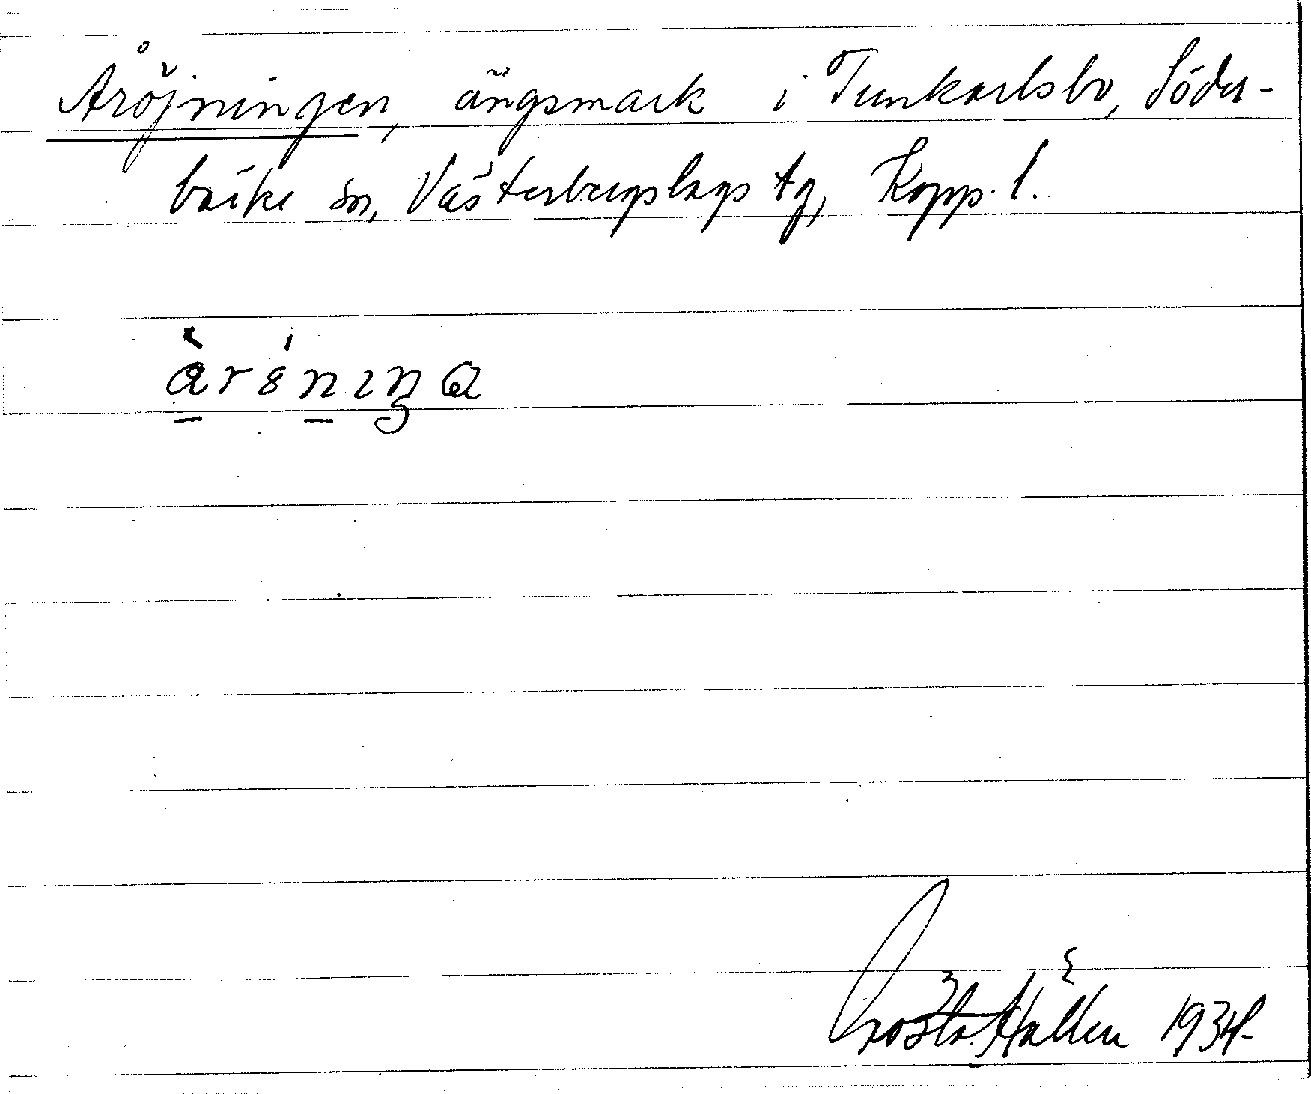 Åröjningen, ängsmark i Tunkarlsbo, Söder-
bärke sn, Västerbergslags tg, Kopp. l.
Gösta Hallén 1934